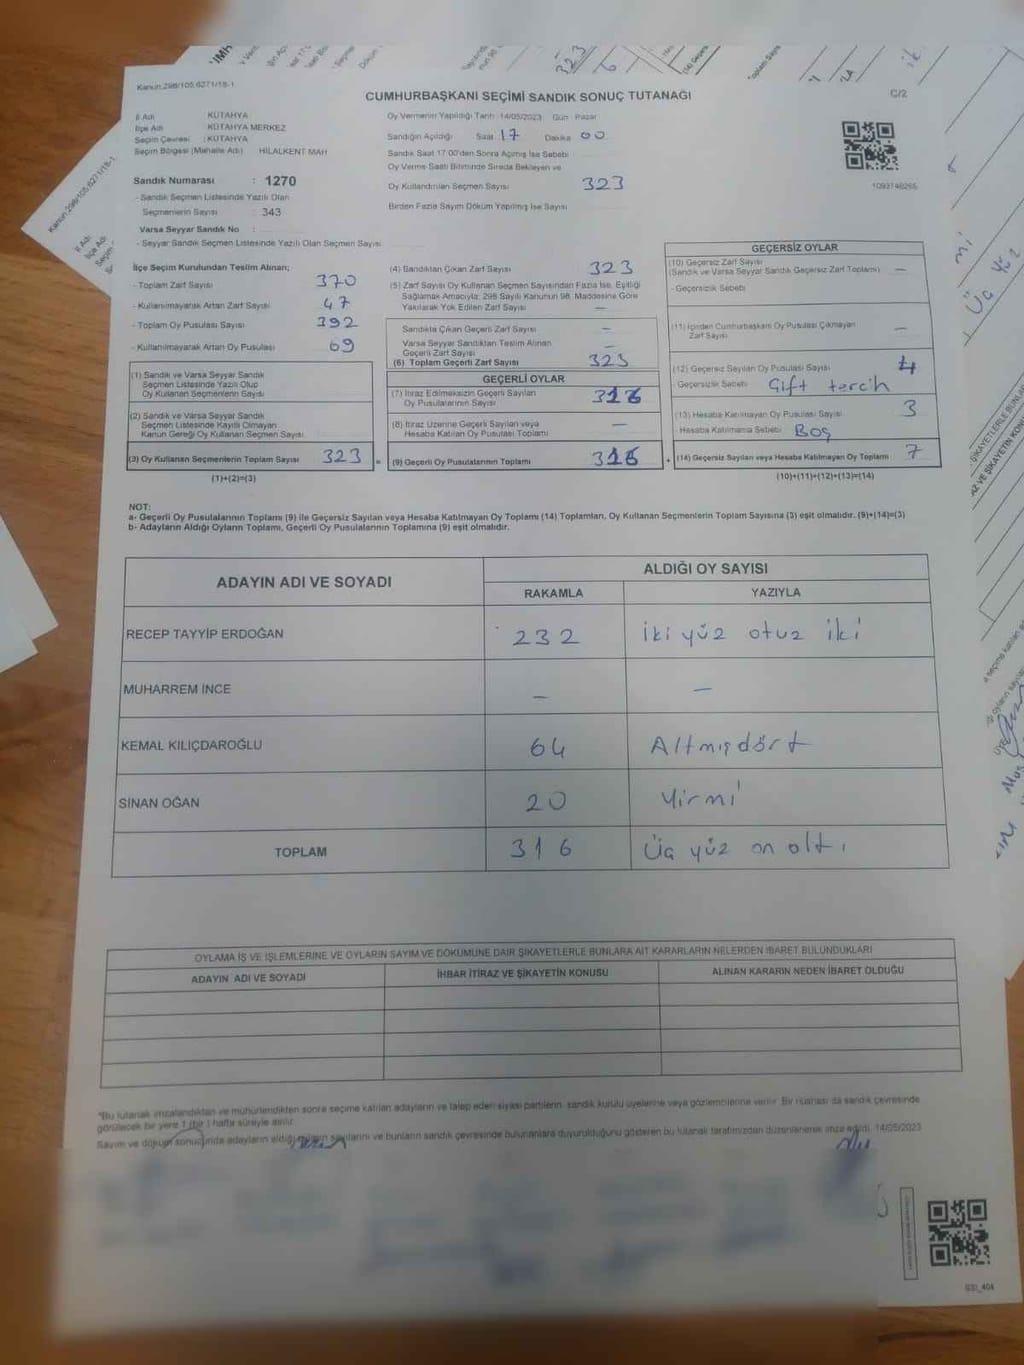 Kanun:298/105,6271/18-1
CUMHURBAŞKANI SEÇİMİ SANDIK SONUÇ TUTANAĞI
C/2
İl Adı : KÜTAHYA
İlçe Adı : KÜTAHYA MERKEZ
Seçim Çevresi : KÜTAHYA
Seçim Bölgesi (Mahalle Adı) HİLALKENT MAH
Sandık Numarası : 1270
- Sandık Seçmen Listesinde Yazılı Olan
Seçmenlerin Sayısı : 343
Varsa Seyyar Sandık No :
- Seyyar Sandık Seçmen Listesinde Yazılı Olan Seçmen Sayısı
Oy Vermenin Yapıldığı Tarih 14/05/2023 Gün Pazar
Sandığın Açıldığı Saat 17 Dakika 00
Sandık Saat 17:00'den Sonra Açılmış İse Sebebi
Oy Verme Saati Bitiminde Sırada Bekleyen ve
Oy Kullandırılan Seçmen Sayısı 323
Birden Fazla Sayım Döküm Yapılmış İse Sayısı
1093748265
İlçe Seçim Kurulundan Teslim Alınan;
- Toplam Zarf Sayısı 370
- Kullanılmayarak Artan Zarf Sayısı 47
- Toplam Oy Pusulası Sayısı 392
- Kullanılmayarak Artan Oy Pusulası 69
(1) Sandık ve Varsa Seyyar Sandık
Seçmen Listesinde Yazılı Olup
Oy Kullanan Seçmenlerin Sayısı
(2) Sandık ve Varsa Seyyar Sandık
Seçmen Listesinde Kayıtlı Olmayan
Kanun Gereği Oy Kullanan Seçmen Sayısı
(3) Oy Kullanan Seçmenlerin Toplam Sayısı 323 =
(1)+(2)=(3)
(4) Sandıktan Çıkan Zarf Sayısı 323
(5) Zarf Sayısı Oy Kullanan Seçmen Sayısından Fazla İse, Eşitliği
Sağlamak Amacıyla, 298 Sayılı Kanunun 98. Maddesine Göre
Yakılarak Yok Edilen Zarf Sayısı —
Sandıkta Çıkan Geçerli Zarf Sayısı —
Varsa Seyyar Sandıktan Teslim Alınan
Geçerli Zarf Sayısı —
(6) Toplam Geçerli Zarf Sayısı 323
GEÇERLİ OYLAR
(7) İtiraz Edilmeksizin Geçerli Sayılan
Oy Pusulalarının Sayısı 316
(8) İtiraz Üzerine Geçerli Sayılan veya
Hesaba Katılan Oy Pusulası Toplamı —
(9) Geçerli Oy Pusulalarının Toplamı 316 +
GEÇERSİZ OYLAR
(10) Geçersiz Zarf Sayısı
(Sandık ve Varsa Seyyar Sandık Geçersiz Zarf Toplamı) —
- Geçersizlik Sebebi
(11) İçinden Cumhurbaşkanı Oy Pusulası Çıkmayan
Zarf Sayısı —
(12) Geçersiz Sayılan Oy Pusulası Sayısı 4
- Geçersizlik Sebebi Çift tercih
(13) Hesaba Katılmayan Oy Pusulası Sayısı 3
- Hesaba Katılmama Sebebi Boş
(14) Geçersiz Sayılan veya Hesaba Katılmayan Oy Toplamı 7
(10)+(11)+(12)+(13)=(14)
NOT:
a- Geçerli Oy Pusulalarının Toplamı (9) ile Geçersiz Sayılan veya Hesaba Katılmayan Oy Toplamı (14) Toplamları, Oy Kullanan Seçmenlerin Toplam Sayısına (3) eşit olmalıdır. (9)+(14)=(3)
b- Adayların Aldığı Oyların Toplamı, Geçerli Oy Pusulalarının Toplamına (9) eşit olmalıdır.
ADAYIN ADI VE SOYADI
ALDIĞI OY SAYISI
RAKAMLA YAZIYLA
RECEP TAYYİP ERDOĞAN 232 iki yüz otuz iki
MUHARREM İNCE — —
KEMAL KILIÇDAROĞLU 64 Altmışdört
SİNAN OĞAN 20 Yirmi
TOPLAM 316 Üç yüz on altı
OYLAMA İŞ VE İŞLEMLERİNE VE OYLARIN SAYIM VE DÖKÜMÜNE DAİR ŞİKAYETLERLE BUNLARA AİT KARARLARIN NELERDEN İBARET BULUNDUKLARI
ADAYIN ADI VE SOYADI İHBAR İTİRAZ VE ŞİKAYETİN KONUSU ALINAN KARARIN NEDEN İBARET OLDUĞU
*Bu tutanak imzalandıktan ve mühürlendikten sonra seçime katılan adayların ve talep eden siyasi partilerin sandık kurulu üyelerine veya gözlemcilerine verilir. Bir nüshası da sandık çevresinde
görülecek bir yere 1 (bir) hafta süreyle asılır.
Sayım ve döküm sonucunda adayların aldığı oyların sayılarını ve bunların sandık çevresinde bulunanlara duyurulduğunu gösteren bu tutanak tarafımızdan düzenlenerek imza edildi. 14/05/2023